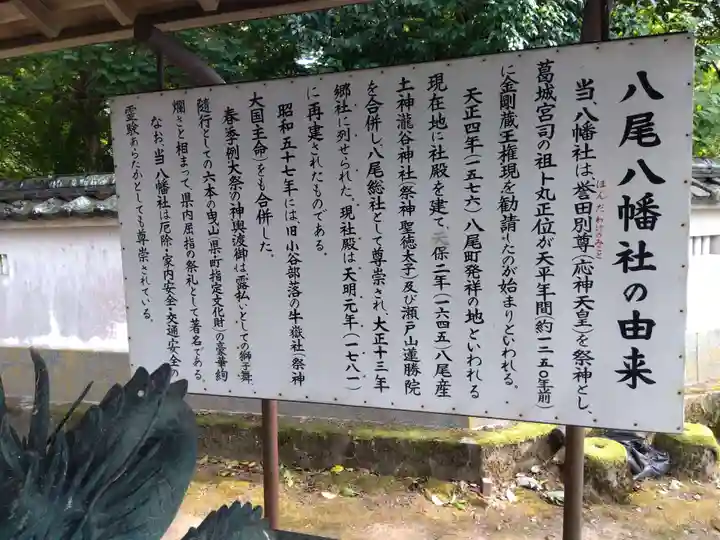 八尾八幡社の由来
当、八幡社は、誉田別尊(応神天皇)を祭神とし、
ほんだわけのみこと
葛城宮司の祖卜丸正位が天平年間(約一二五〇年前)
に金剛蔵王権現を勧請したのが始まりといわれる。
天正四年(一五七六)八尾町発祥の地といわれる
現在地に社殿を建て、保二年(一六四五)八尾産
土神瀧谷神社(祭神聖徳太子)及び瀬戸山蓮勝院
を合併し、八尾総社として尊崇され、大正十三年
郷社に列せられた。現社殿は天明元年(一七八一)
に再建されたものである。
昭和五十七年には、旧小谷部落の牛嶽社(祭神
大国主命)をも合併した。
春季例大祭の神輿渡御は、露払いとしての獅子舞、
随行としての六本の曳山(県・町指定文化財)の豪華絢
爛さと相まって、県内屈指の祭礼として著名である。
なお、当八幡社は厄除・家内安全・交通安全の
霊験あらたかとしても尊崇されている。